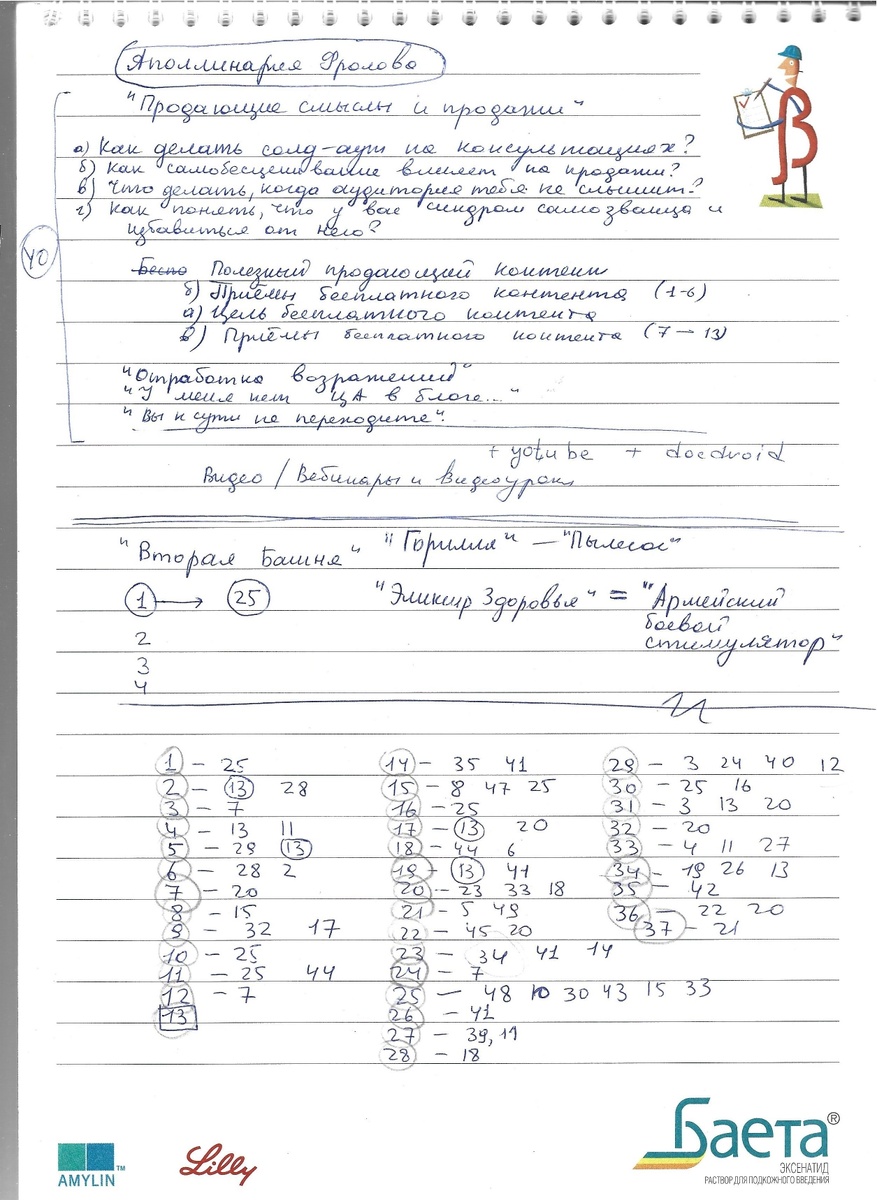 Аполлинария Фролова
"Продающие смыслы и продажи"
а) Как делать солд-аут на консультациях?
б) Как самобесценивание влияет на продажи?
в) Что делать, когда аудитория тебя не слышит?
г) Как понять, что у вас синдром самозванца и
избавиться от него?
УО
Беспо Полезный продающий контент
б) Приёмы бесплатного контента (1-6)
а) Цель бесплатного контента
в) Приёмы бесплатного контента (7 – 13)
"Отработка возражений"
"У меня нет ЦА в блоге..."
"Вы к сути не переходите".
+ yotube + docdroid
Видео / Вебинары и видеоуроки
"Вторая Башня" "Горилла" – "Пылесос"
1 → 25 "Эликсир Здоровья" = "Армейский
боевой
2 стимулятор"
3
4
1 – 25 14 – 35 41 29 – 3 24 40 12
2 – 13 28 15 – 8 47 25 30 – 25 16
3 – 7 16 – 25 31 – 3 13 20
4 – 13 11 17 – 13 20 32 – 20
5 – 29 13 18 – 44 6 33 – 4 11 27
6 – 28 2 19 – 13 41 34 – 19 26 13
7 – 20 20 – 23 33 18 35 – 42
8 – 15 21 – 5 49 36 – 22 20
9 – 32 17 22 – 45 20 37 – 21
10 – 25 23 – 34 41 14
11 – 25 44 24 – 7
12 – 7 25 – 48 10 30 43 15 33
13 26 – 41
27 – 39, 19
28 – 18
AMYLIN™ Lilly Баета®
ЭКСЕНАТИД
РАСТВОР ДЛЯ ПОДКОЖНОГО ВВЕДЕНИЯ